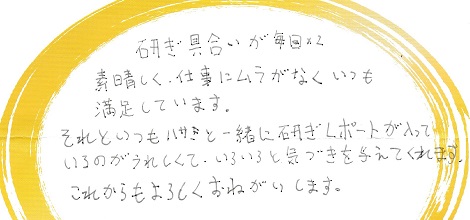 研ぎ具合いが毎回
素晴しく、仕事にムラがなくいつも
満足しています。
それといつもハサミと一緒に研ぎレポートが入って
いるのがうれしくて、いろいろと気づきを与えてくれます。
これからもよろしくおねがいします。